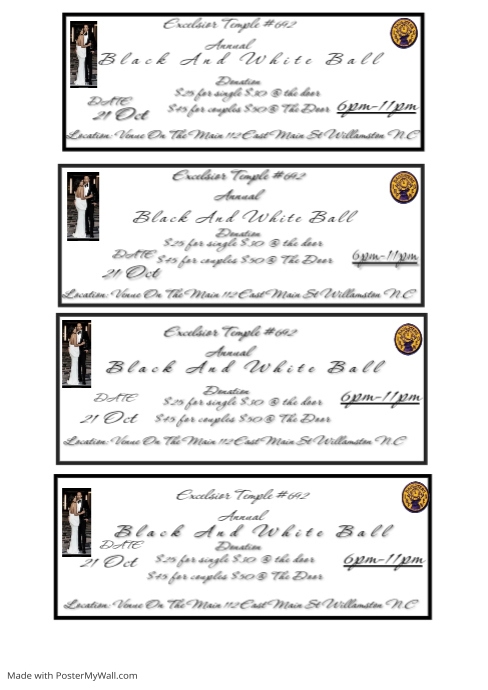 Excelsior Temple #642
Annual
Black And White Ball
Donation
$25 for single $30 @ the door
DATE
$45 for couples $50 @ The Door
6pm-11pm
21 Oct
Location: Venue On The Main 112 East Main St Willamston N.C
Excelsior Temple #642
Annual
Black And White Ball
Donation
$25 for single $30 @ the door
DATE
$45 for couples $50 @ The Door
6pm-11pm
21 Oct
Location: Venue On The Main 112 East Main St Willamston N.C
Excelsior Temple #642
Annual
Black And White Ball
Donation
DATE
$25 for single $30 @ the door
6pm-11pm
21 Oct
$45 for couples $50 @ The Door
Location: Venue On The Main 112 East Main St Willamston N.C
Excelsior Temple #642
Annual
Black And White Ball
DATE
Donation
21 Oct
$25 for single $30 @ the door
6pm-11pm
$45 for couples $50 @ The Door
Location: Venue On The Main 112 East Main St Willamston N.C
Made with PosterMyWall.com